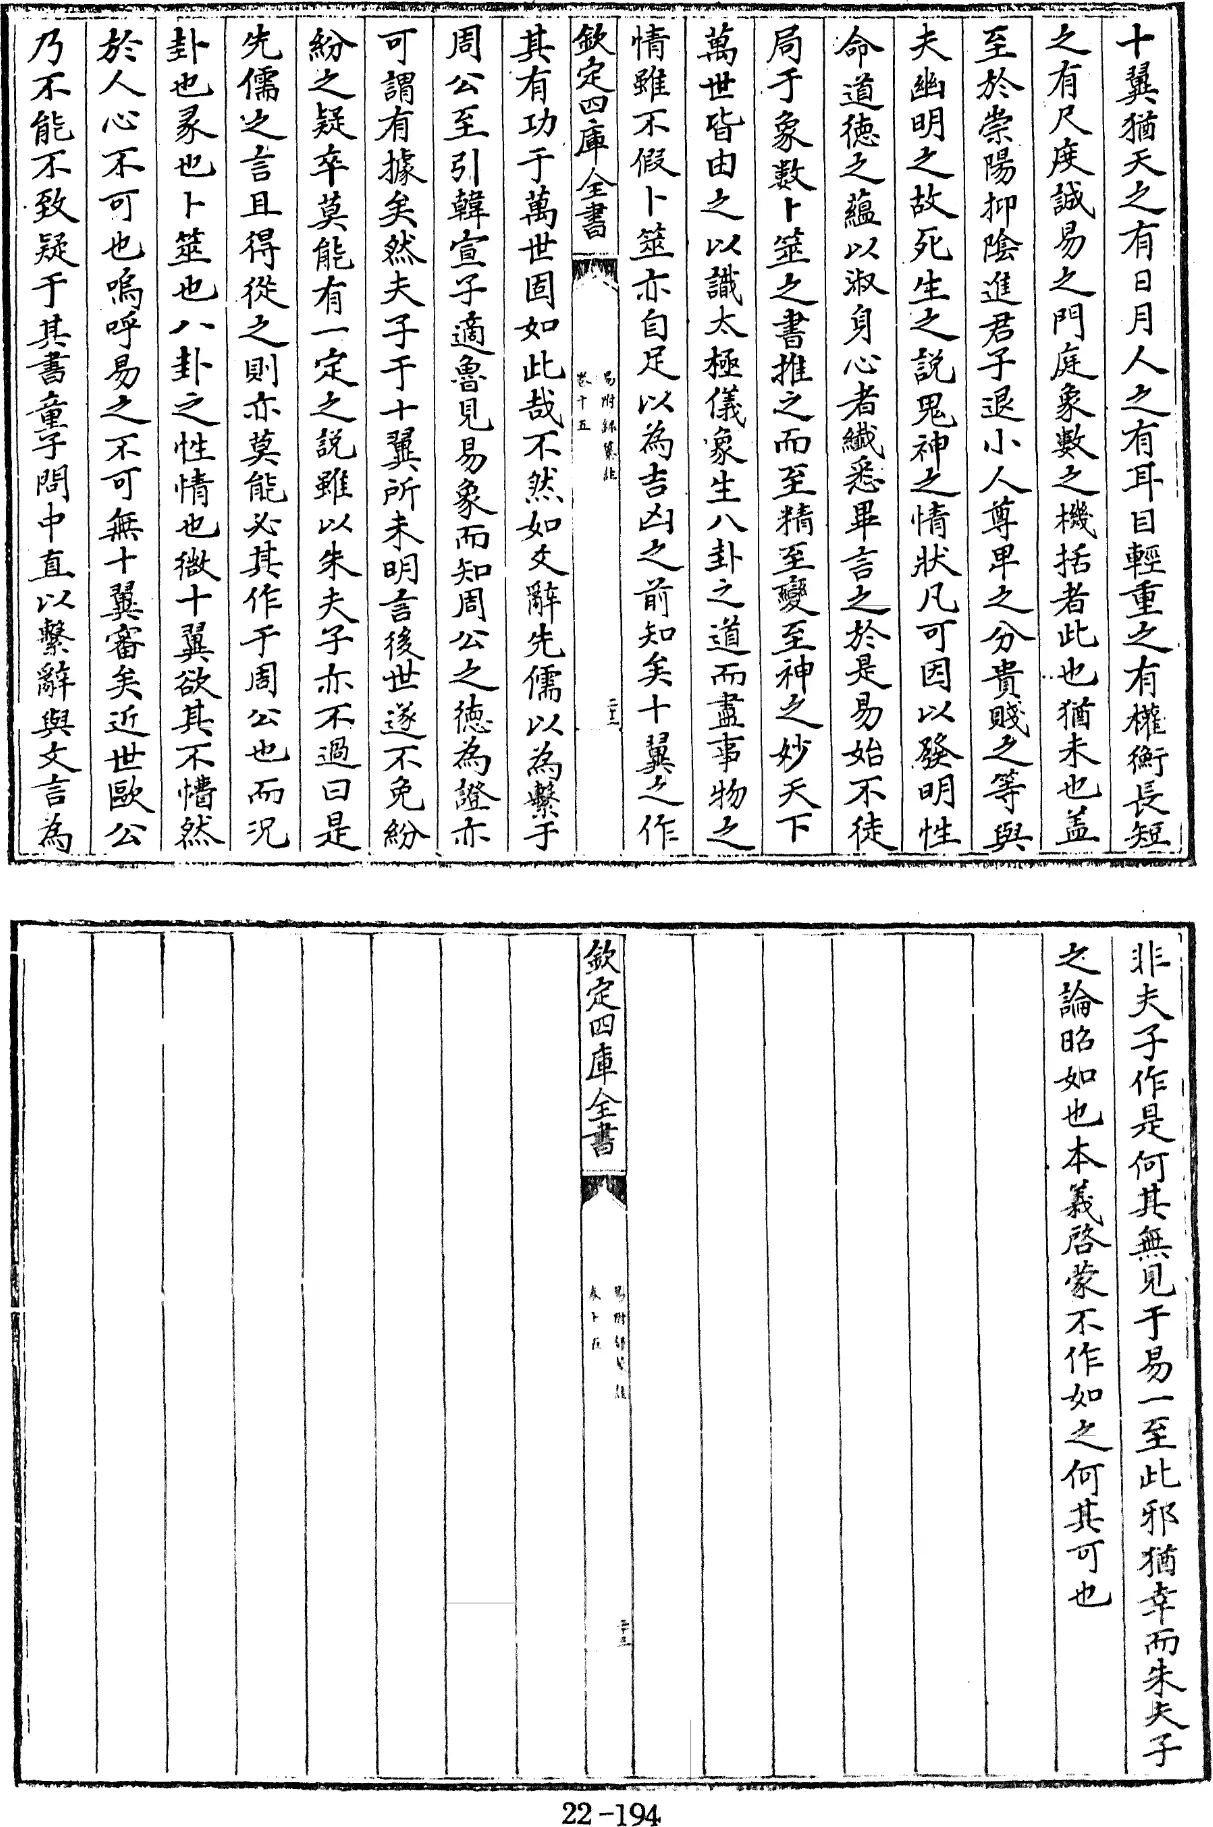 十翼猶天之有日月人之有耳目輕重之有權衡長短
之有尺度誠易之門庭象數之機括者此也猶未也盖
至於崇陽抑陰進君子退小人尊卑之分貴賤之等與
夫幽明之故死生之説鬼神之情狀凡可因以發明性
命道徳之藴以淑身心者纎悉畢言之於是易始不徒
局于象數卜筮之書推之而至精至變至神之妙天下
萬世皆由之以識太極儀象生八卦之道而盡事物之
情雖不假卜筮亦自足以為吉凶之前知矣十翼之作
欽定四庫全書
易附録纂註
卷十五
二十二
其有功于萬世固如此哉不然如爻辭先儒以為繫于
周公至引韓宣子適魯見易象而知周公之徳為證亦
可謂有據矣然夫子于十翼所未明言後世遂不免紛
紛之疑卒莫能有一定之説雖以朱夫子亦不過曰是
先儒之言且得從之則亦莫能必其作于周公也而況
卦也彖也卜筮也八卦之性情也微十翼欲其不懵然
於人心不可也嗚呼易之不可無十翼審矣近世歐公
乃不能不致疑于其書童子問中直以繫辭與文言為
非夫子作是何其無見于易一至此邪猶幸而朱夫子
之論昭如也本義啓蒙不作如之何其可也
欽定四庫全書
易附録纂註
卷十五
二十三
22-194